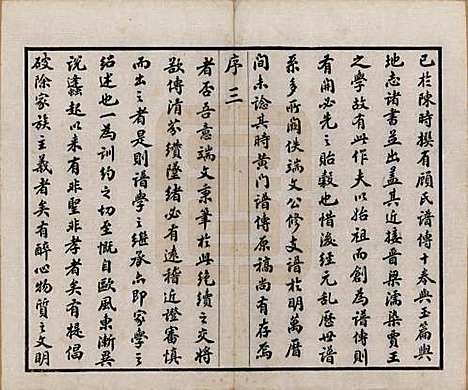 已於陳時撰有顧氏譜傳十卷與玉篇輿
地志諸書並出蓋其近接晉梁濡染賈王
之學故有此作夫以始祖而創為譜傳則
有開必先之貽穀也惜後經元亂歷世譜
系多所闕佚端文公修支譜於明萬厯
間未諗其時黃門譜傳原稿尚有存焉
序三
者否吾意端文秉筆於此絕續之交將
欲傳清芬纘墜緒必有遠稽近證審慎
而出之者是則譜學之繼承亦即家學之
紹述也一為訓約之切至慨自歐風東漸異
說蠭起以來有非聖非孝者矣有提倡
破除家族主義者矣有醉心物質之文明